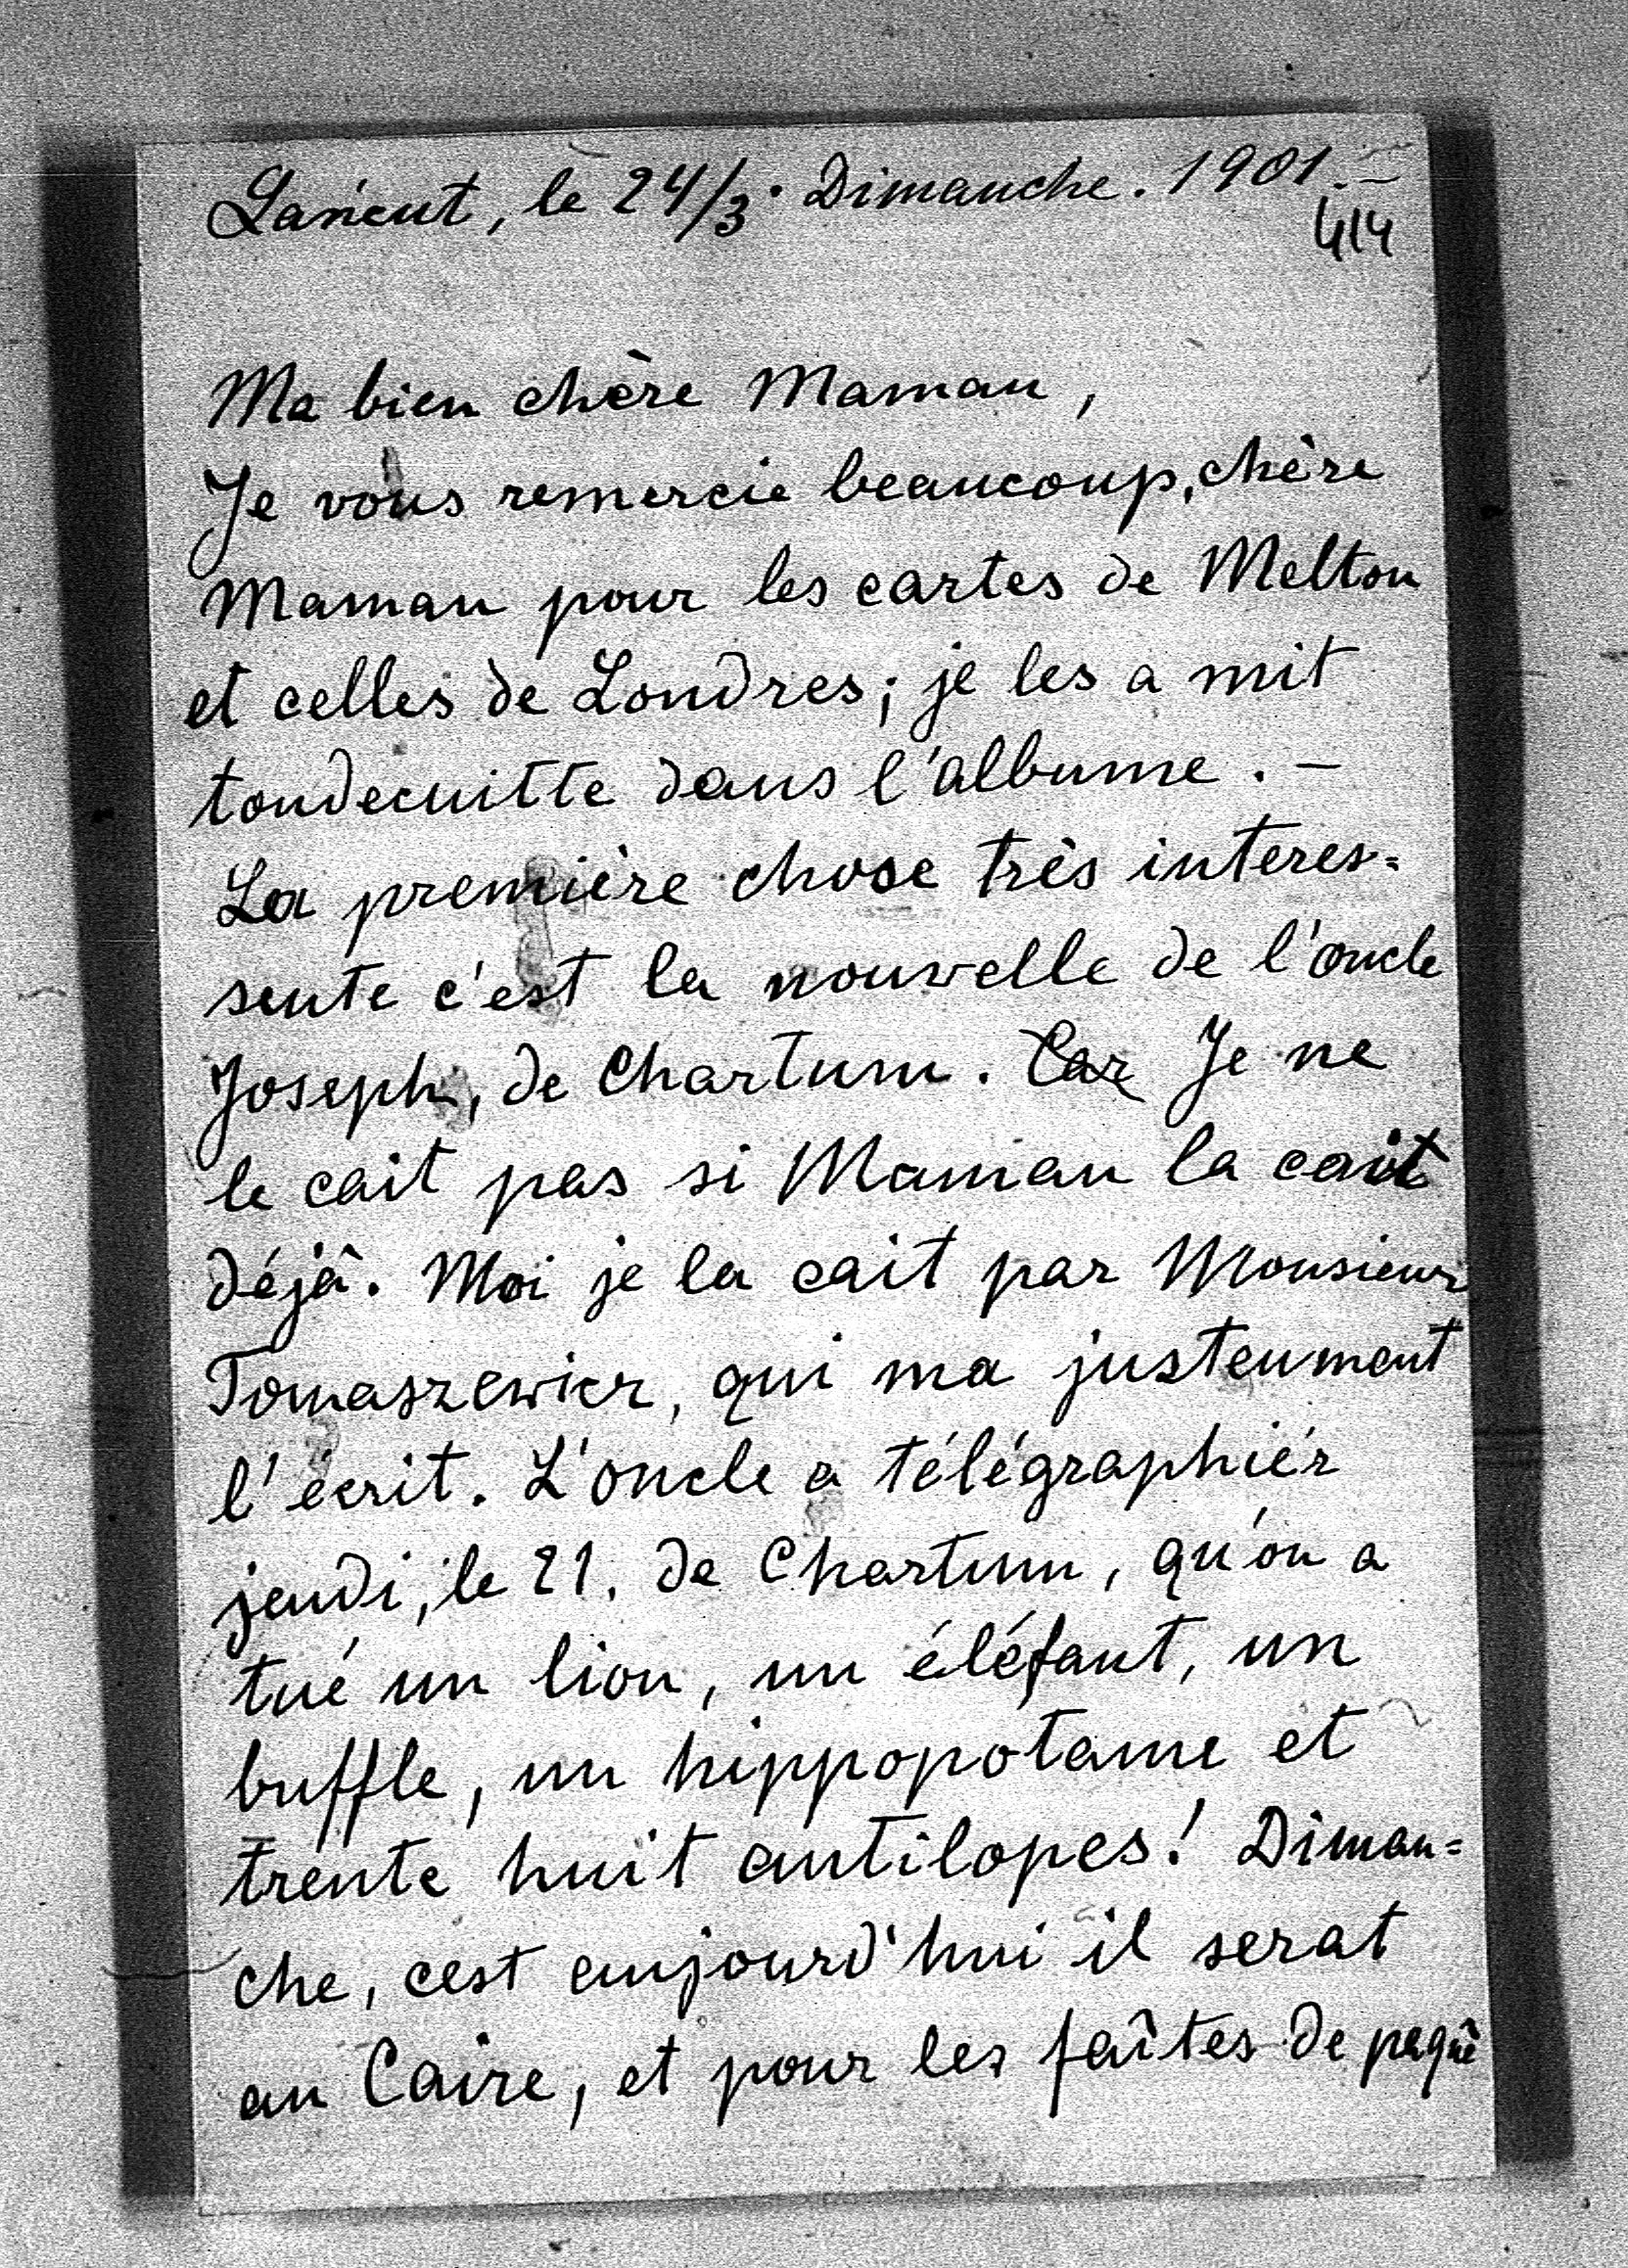 Łańcut, le 24/3. Dimanche. 1901.—
414
Ma bien chère Maman,
Je vous remercie beaucoup, chère
Maman pour les cartes de Melton
et celles de Londres; je les a mit
toudecuitte dans l'albume. —
La première chose très interes=
sente c'est la nouvelle de l'oncle
Joseph, de Chartum. Car Je ne
le cait pas si Maman la cait
déjà. Moi je la cait par Monsieur
Tomaszewicz, qui ma justeument
l'écrit. L'oncle a télégraphiér
jeudi, le 21. de Chartum, qu'on a
tué un lion, un éléfant, un
buffle, un hippopotame et
trente huit antilopes! Diman=
che, cest aujourd'hui il serat
au Caire, et pour les faîtes de paquê